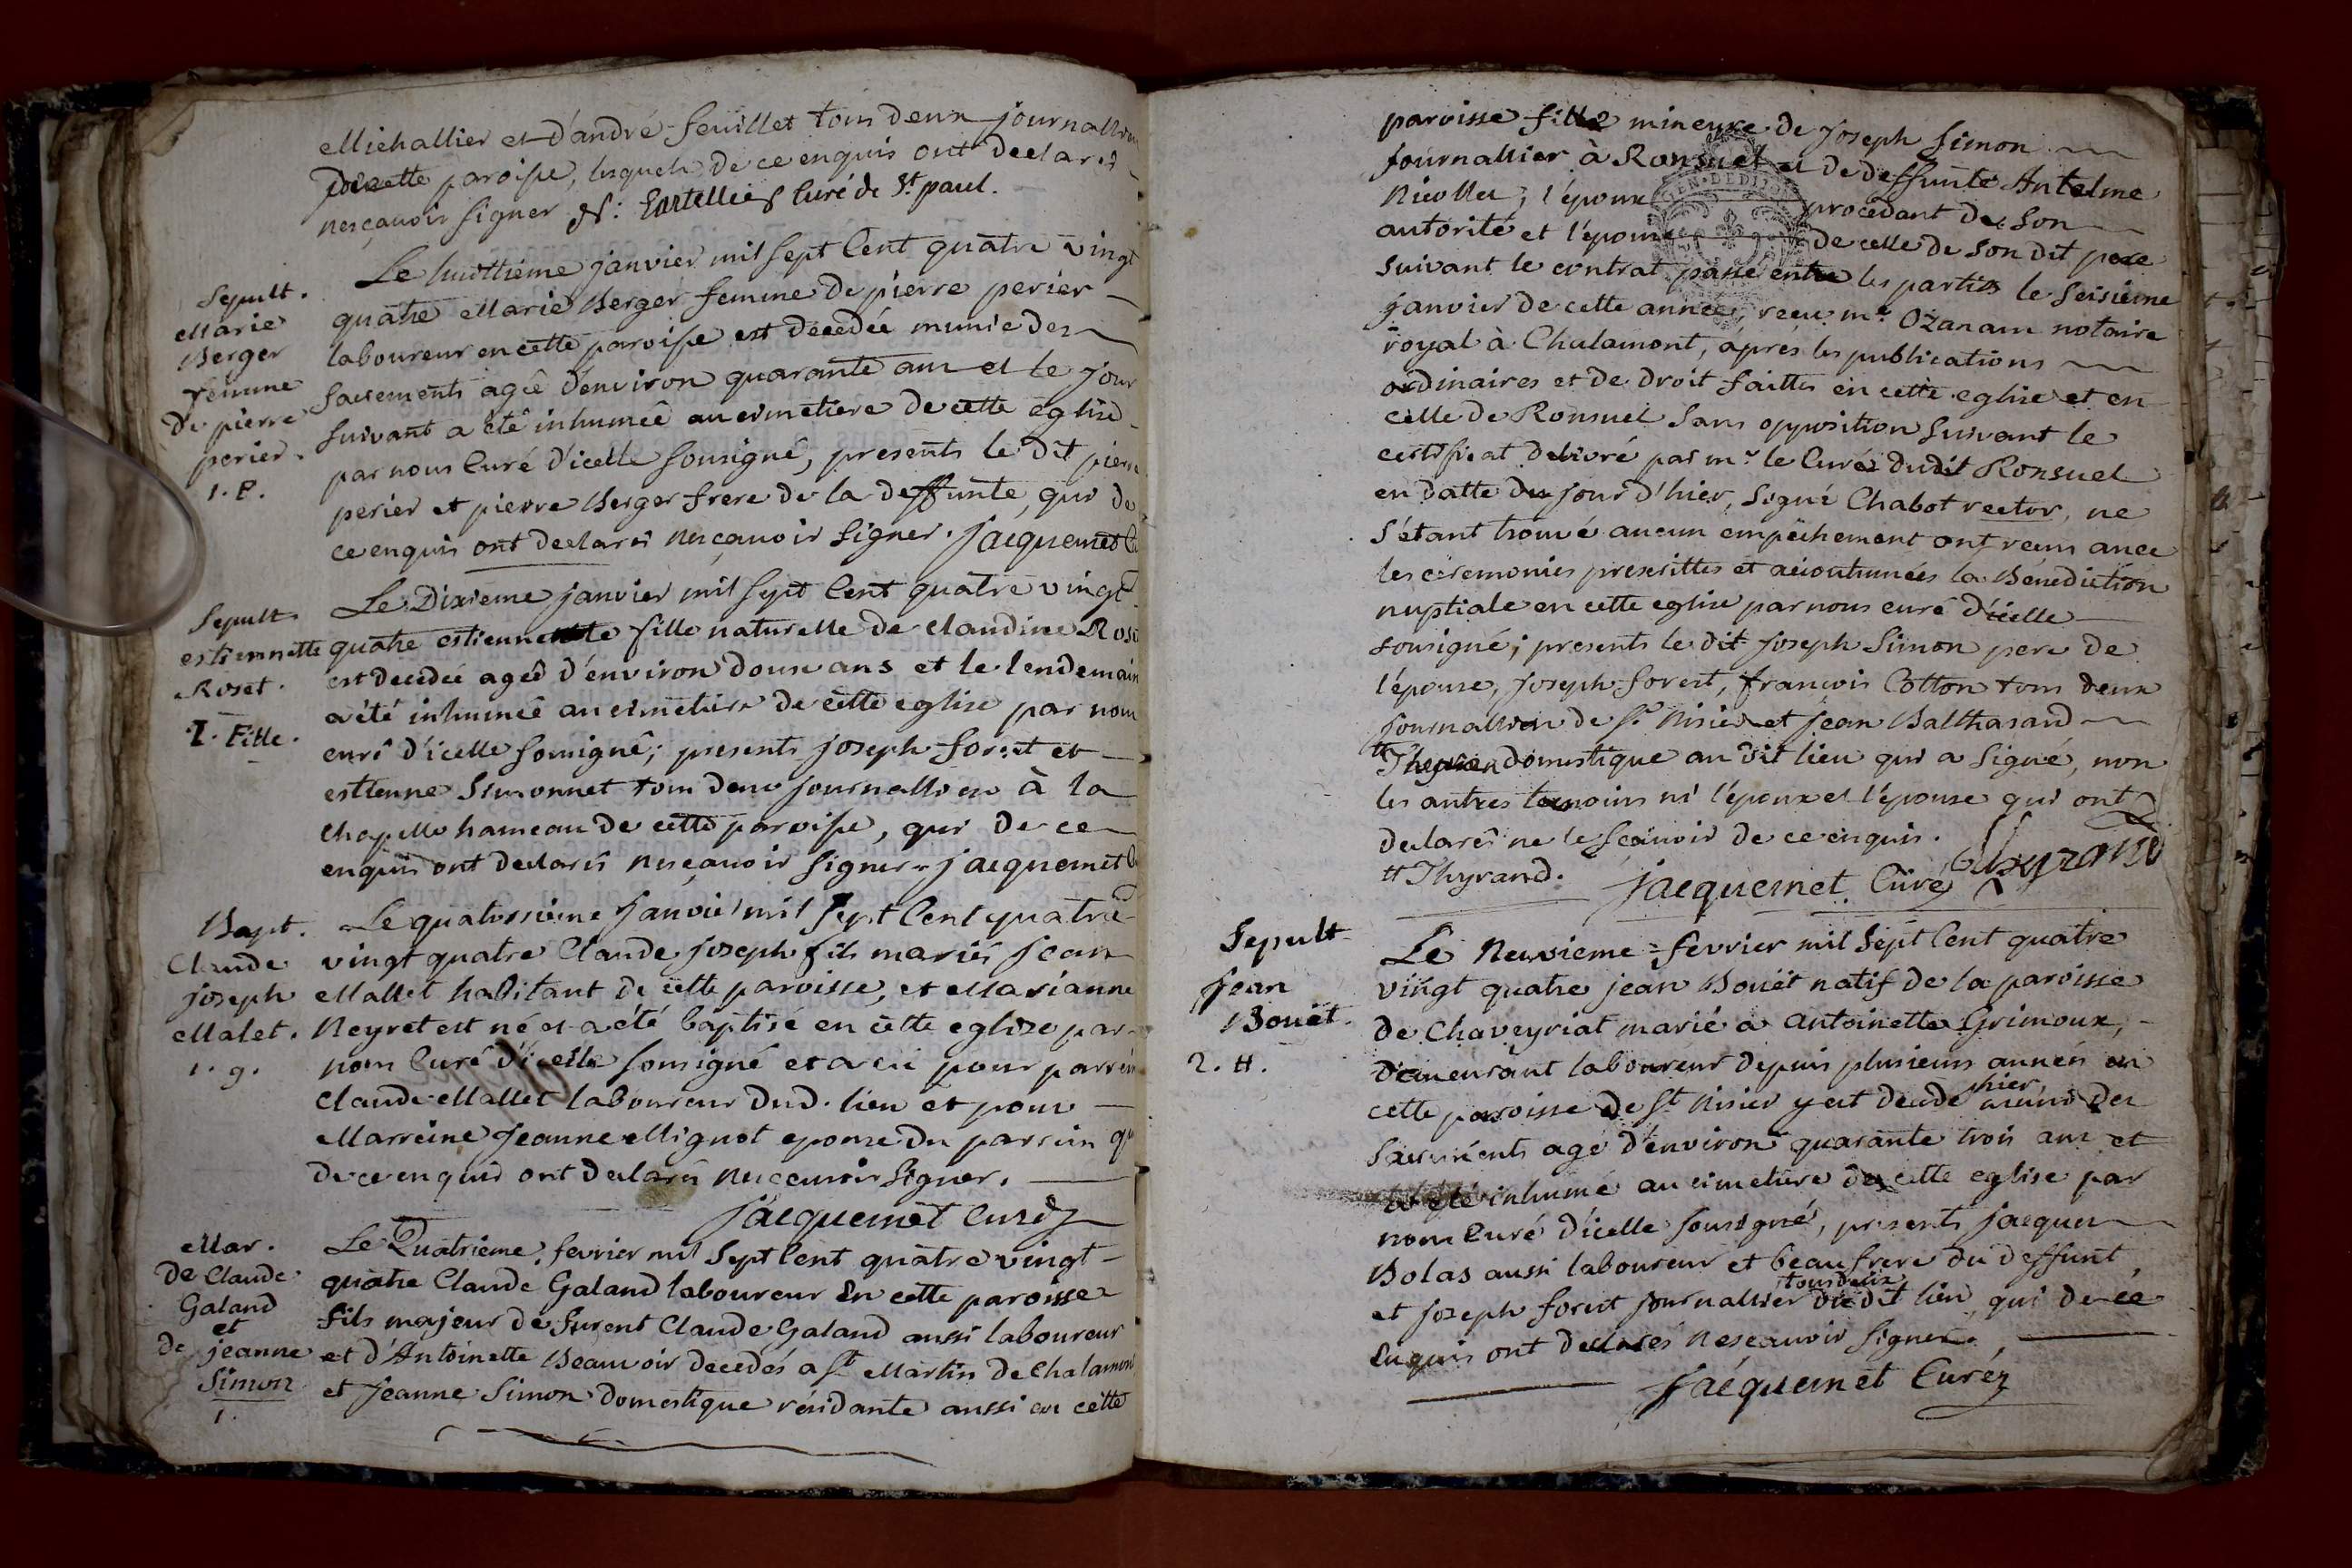 Michallier et d'andré feuillet tous deux journallie
de cette paroisse, lesquels de ce enquis ont declarés
ne sçavoir signer curé de St. paul.
Sepult.
Marie
Berger
femme
de pierre
perier.
1. P.
Le huittieme janvier mil sept Cent quatre vingt
quatre Marie Berger femme de pierre perier
laboureur en cette paroisse est decedée munie des
sacrements agée d'environ quarante ans et le jour
suivant a été inhumée au cimetiere de cette eglise
par nous Curé d'icelle sousigné, presents le dit pierre
perier et pierre Berger frere de la deffunte, qui de
ce enquis ont declarés ne sçavoir signer. jacquemet
Sepult
estiennette
Roset.
1. Fille.
Le Dixieme janvier mil sept Cent quatre vingt
quatre estiennette fille naturelle de claudine Ros
est decedée agée d'environ douse ans et le lendemain
a été inhumée au cimetiere de cette eglise par nous
curé d'icelle sousigné; presents joseph forest et
estienne Simonnet tous deux journalliers à la
chapelle hameau de cette paroisse, qui de ce
enquis ont declarés ne sçavoir signer. jacquemet
Bapt.
Claude
joseph
Malet.
1. g.
Le quatorsieme janvier mil sept Cent quatre
vingt quatre Claude joseph fils mariés jean
Mallet habitant de cette paroisse, et Marianne
Neyret est né et a été baptisé en cette eglise par
nous Curé d'icelle sousigné et a eu pour parrein
Claude Mallet laboureur dud. lieu et pour
Marreine jeanne Mignot epouse du parrein qu
de ce enquis ont declarés ne sçavoir signer.
jacquemet Curé
Mar.
de Claude
Galand
et
de jeanne
Simon
1.
Le Quatrieme fevrier mil sept Cent quatre vingt
quatre Claude Galand laboureur en cette paroisse
fils majeur de furent Claude Galand aussi laboureur
et d'Antoinette Beauvoir decedés a St Martin de Chalamont
et jeanne Simon domestique résidante aussi en cette
paroisse fille mineure de joseph Simon
journallier à Ronsuel et de deffunte Antelme
Nicollet; l'époux procedant de son
autorité et l'épouse de celle de son dit pere
suivant le contrat passé entre les parties le seisieme
janvier de cette année, recu me. Ozanam notaire
royal à Chalamont, après les publications
ordinaires et de droit faittes en cette eglise et en
celle de Ronsuel sans opposition suivant le
certificat delivré par mr. le Curé dudit Ronsuel
en datte du jour d'hier, signé Chabot rector, ne
s'étant trouvé aucun empêchement ont recus avec
les ceremonies prescrittes et accoutumées la Bénediction
nuptiale en cette eglise par nous curé d'icelle
sousigné; presents le dit joseph Simon pere de
l'épouse, joseph forest, francois Cotton tous deux
journalliers de St. Nisier et jean Balthasard
domestique au dit lieu qui a signé, non
les autres temoins ni l'époux et l'épouse qui ont
declaré ne le sçavoir de ce enquis.
Thyrand. jacquemet Curé
Sepult
jean
Bouët.
2. H.
Le Neuvieme fevrier mil sept Cent quatre
vingt quatre jean Bouët natif de la paroisse
de Chaveyriat marié a Antoinette Grimoux,
demeurant laboureur depuis plusieurs années en
cette paroisse de St. Nisier y est decedé hier muni des
sacrements agé d'environ quarante trois ans et
a été inhumé au cimetiere de cette eglise par
nous Curé d'icelle sousigné, presents jacques
Bolas aussi laboureur et beaufrere du deffunt
et joseph forest journallier tous deux dudit lieu, qui de ce
enquis ont declarés ne sçavoir signer.
jacquemet Curé